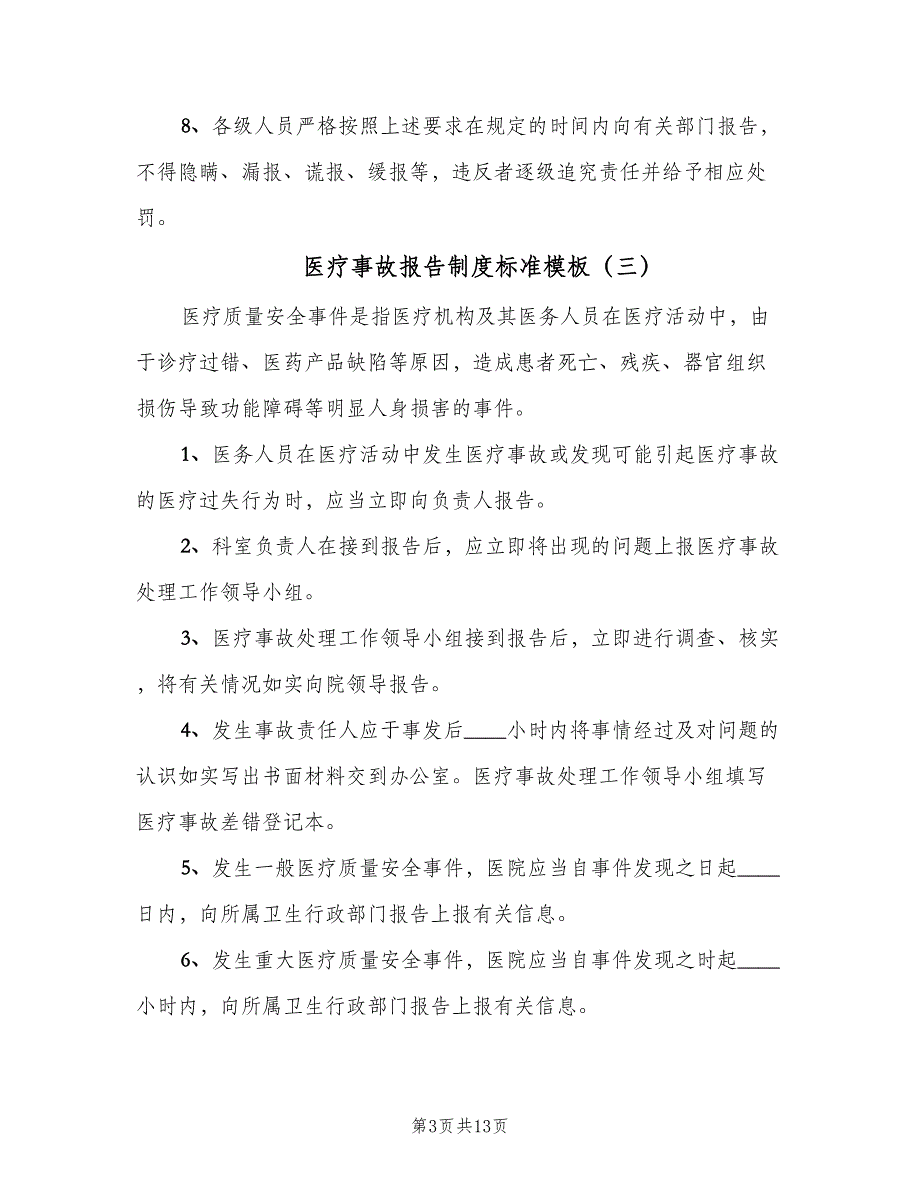 8、各级人员严格按照上述要求在规定的时间内向有关部门报告，
不得隐瞒、漏报、谎报、缓报等，违反者逐级追究责任并给予相应处
罚。
医疗事故报告制度标准模板（三）
医疗质量安全事件是指医疗机构及其医务人员在医疗活动中，由
于诊疗过错、医药产品缺陷等原因，造成患者死亡、残疾、器官组织
损伤导致功能障碍等明显人身损害的事件。
1、医务人员在医疗活动中发生医疗事故或发现可能引起医疗事故
的医疗过失行为时，应当立即向负责人报告。
2、科室负责人在接到报告后，应立即将出现的问题上报医疗事故
处理工作领导小组。
3、医疗事故处理工作领导小组接到报告后，立即进行调查、核实
，将有关情况如实向院领导报告。
4、发生事故责任人应于事发后____小时内将事情经过及对问题的
认识如实写出书面材料交到办公室。医疗事故处理工作领导小组填写
医疗事故差错登记本。
5、发生一般医疗质量安全事件，医院应当自事件发现之日起____
日内，向所属卫生行政部门报告上报有关信息。
6、发生重大医疗质量安全事件，医院应当自事件发现之时起____
小时内，向所属卫生行政部门报告上报有关信息。
第3页共13页